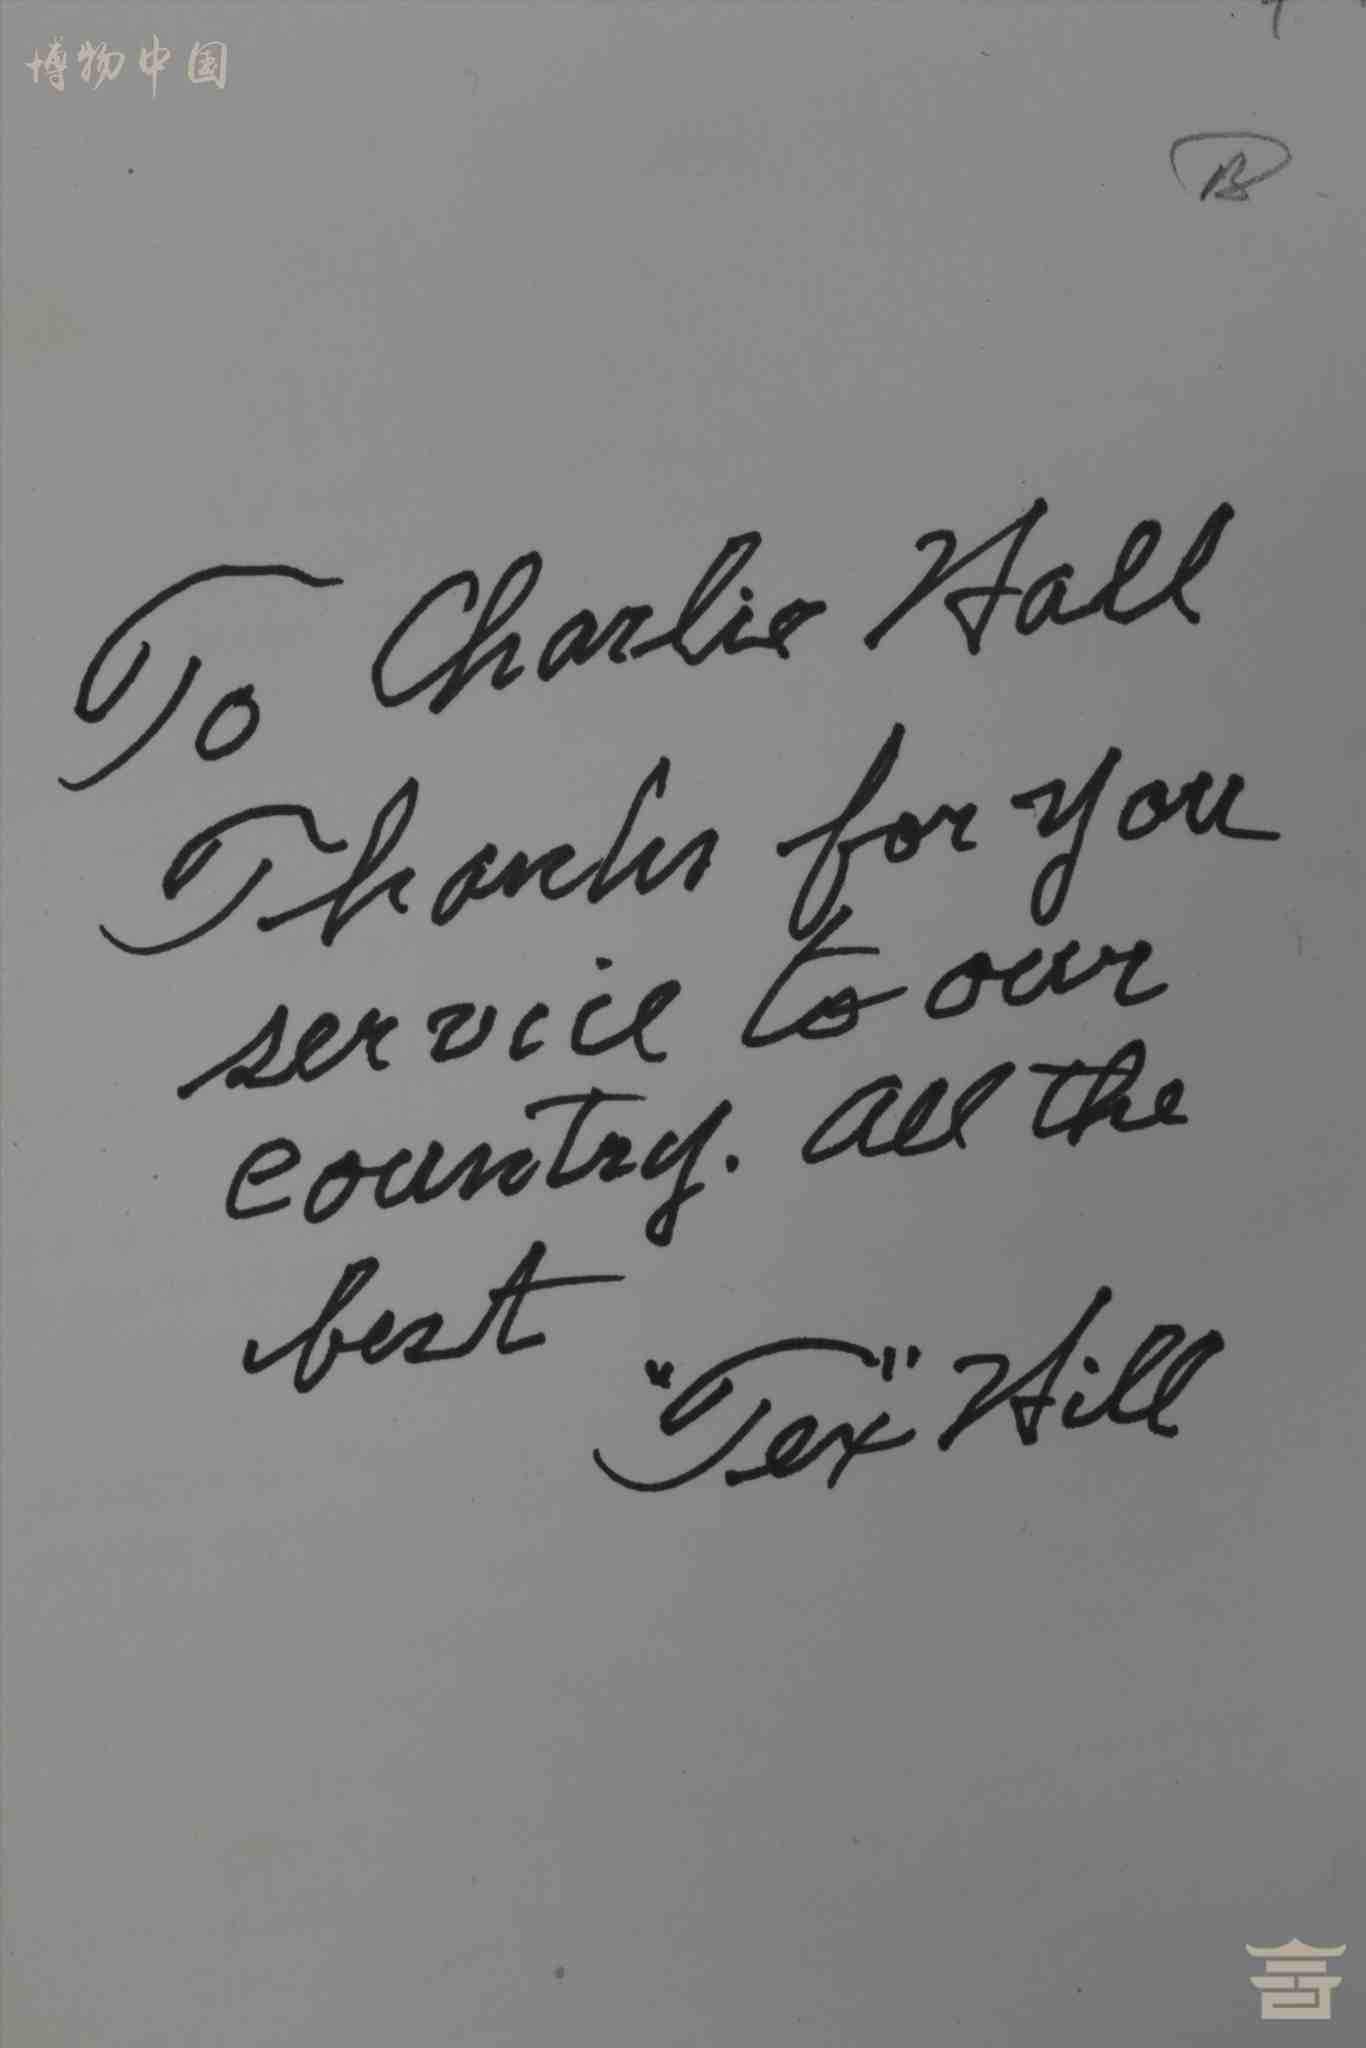 博物中国
B
To Charlie Hall
Thanks for you
service to our
country. All the
best
"Tex" Hill